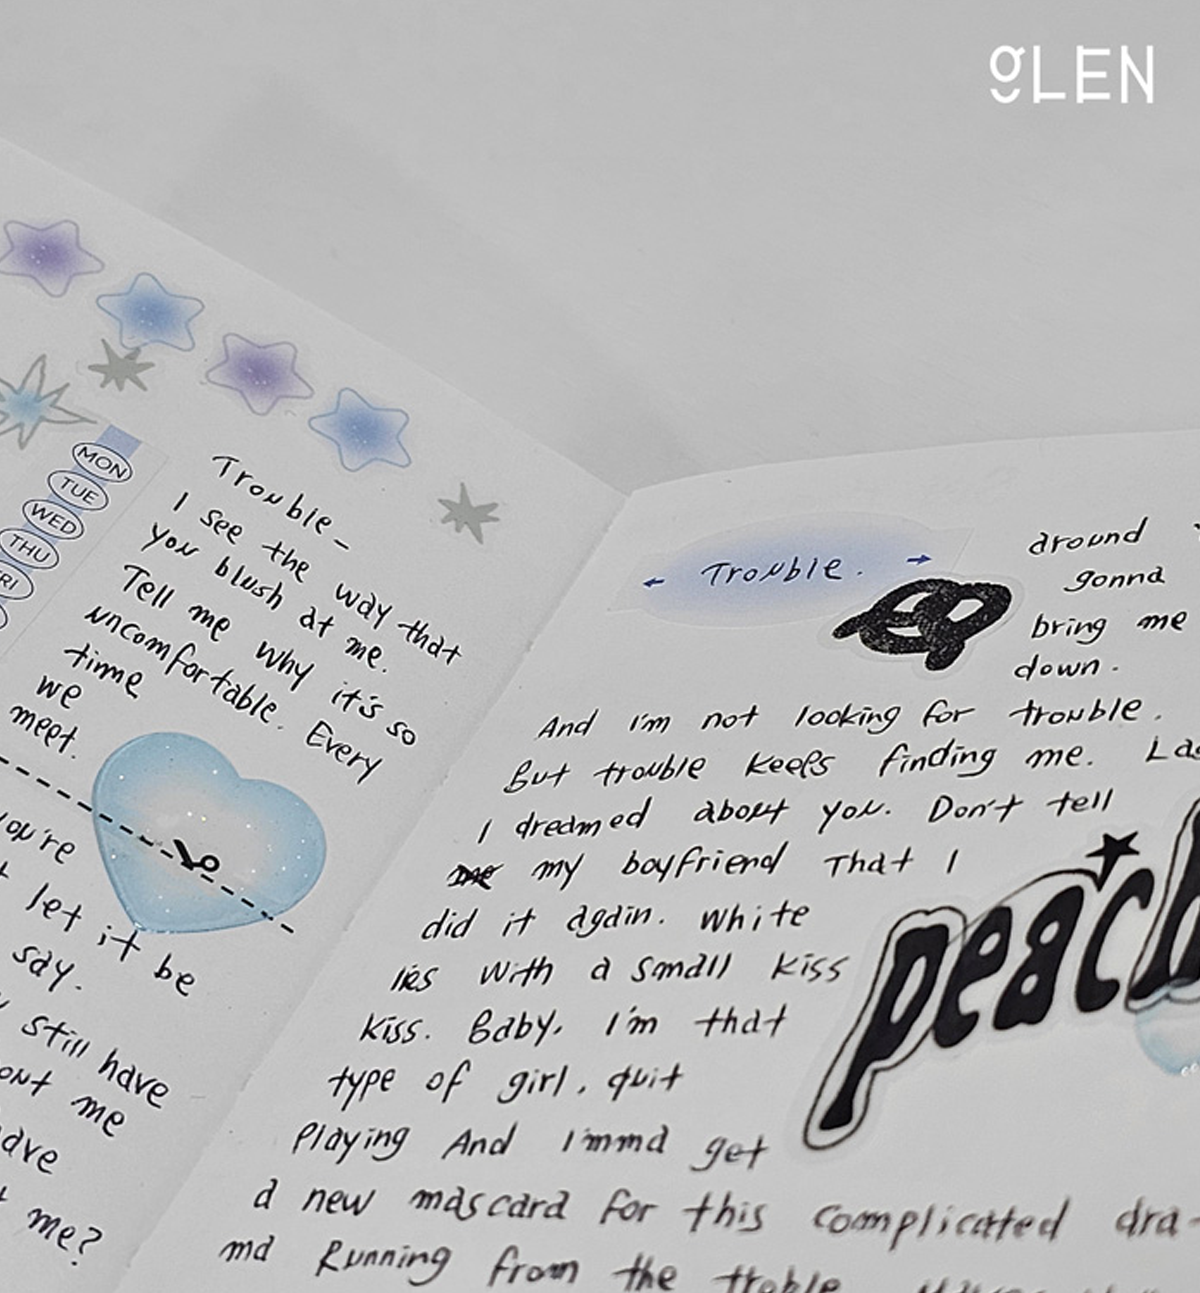 gLEN
MON
TUE
WED
THU
Trouble-
I see the way that
you blush at me.
Tell me why it's so
uncomfortable. Every
time
we
meet.
you're
let it be
say.
still have
me
me?
Trouble.
around
gonna
bring me
down.
And I'm not looking for trouble.
But trouble keeps finding me.
I dreamed about you. Don't tell
my boyfriend That I
did it again. White
lies With a small kiss
kiss. Baby. I'm that
type of girl, quit
Playing And I'mma get
a new mascara for this complicated dra-
ma Running from the troble
peach